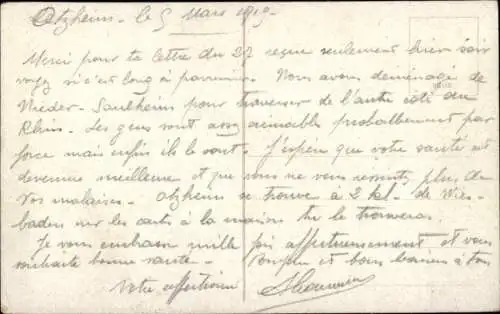 Otzheim - le 5 Mars 1919 -
Merci pour ta lettre du 22 reçue seulement hier soir
voyez si c'est long à parvenir. Nous avons déménagé de
Nieder-Saulheim pour traverser de l'autre côté du
Rhin. Les gens sont assez aimables probablement par
force mais enfin ils le sont. J'espère que votre santé est
devenue meilleure et que vous ne vous ressentez plus de
vos malaises. Otzheim se trouve à 2 kil. de Wies-
baden sur les carts à la maison tu le trouveras.
Je vous embrasse mille fois affectueusement et vous
souhaite bonne santé. Bonjour et bons baisers à tous
Votre affectionné